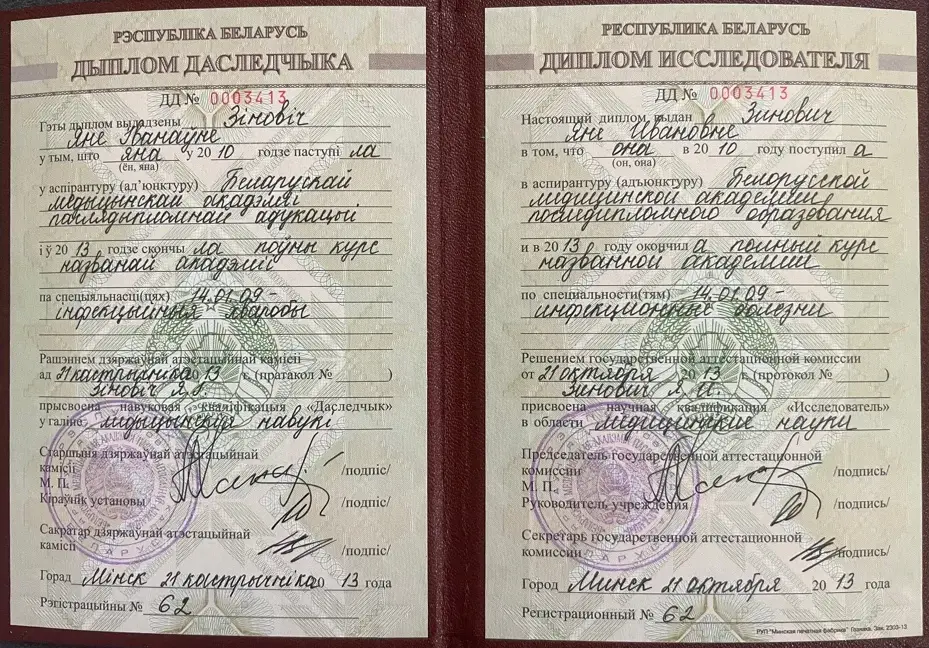 РЭСПУБЛІКА БЕЛАРУСЬ
ДЫПЛОМ ДАСЛЕДЧЫКА
ДД № 0003413
Гэты дыплом выдадзены Зіновіч
Яне Іванаўне
у тым, што яна у 2010 годзе паступіла
(ён, яна)
у аспірантуру (ад'юнктуру) Беларускай
медыцынскай акадэміі
паслядыпломнай адукацыі
і ў 2013 годзе скончыла поўны курс
названай акадэміі
па спецыяльнасці(цях) 14.01.09 –
інфекцыйныя хваробы
Рашэннем дзяржаўнай атэстацыйнай камісіі
ад 21 кастрычніка 2013 г. (пратакол № )
Зіновіч Я.І.
прысвоена навуковая кваліфікацыя «Даследчык»
у галіне медыцынскія навукі
Старшыня дзяржаўнай атэстацыйнай
камісіі /подпіс/
М. П.
Кіраўнік установы /подпіс/
Сакратар дзяржаўнай атэстацыйнай
камісіі /подпіс/
Горад Мінск 21 кастрычніка 2013 года
Рэгістрацыйны № 62
РЕСПУБЛИКА БЕЛАРУСЬ
ДИПЛОМ ИССЛЕДОВАТЕЛЯ
ДД № 0003413
Настоящий диплом выдан Зинович
Яне Ивановне
в том, что она в 2010 году поступила
(он, она)
в аспирантуру (адъюнктуру) Белорусской
медицинской академии
последипломного образования
и в 2013 году окончила полный курс
названной академии
по специальности(тям) 14.01.09 –
инфекционные болезни
Решением государственной аттестационной комиссии
от 21 октября 2013 г. (протокол № )
Зинович Я.И.
присвоена научная квалификация «Исследователь»
в области медицинские науки
Председатель государственной аттестационной
комиссии /подпись/
М. П.
Руководитель учреждения /подпись/
Секретарь государственной аттестационной
комиссии /подпись/
Город Минск 21 октября 2013 года
Регистрационный № 62
РУП "Минская печатная фабрика" Гознака. Зак. 2303-13